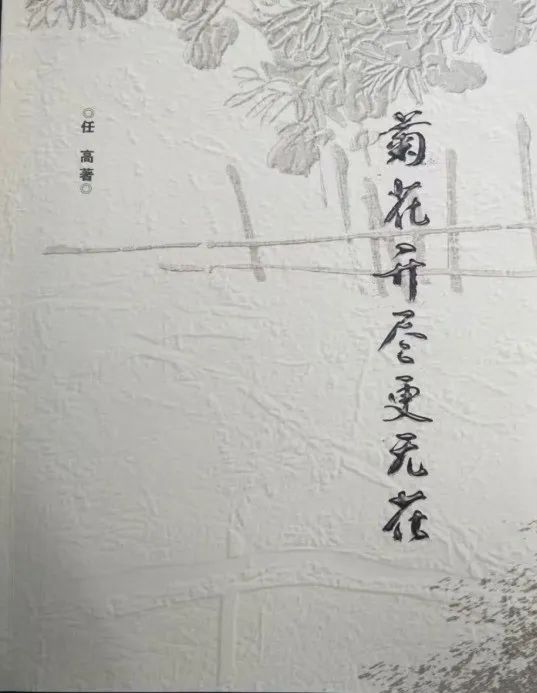 菊花开尽更无花
◎任 高著◎